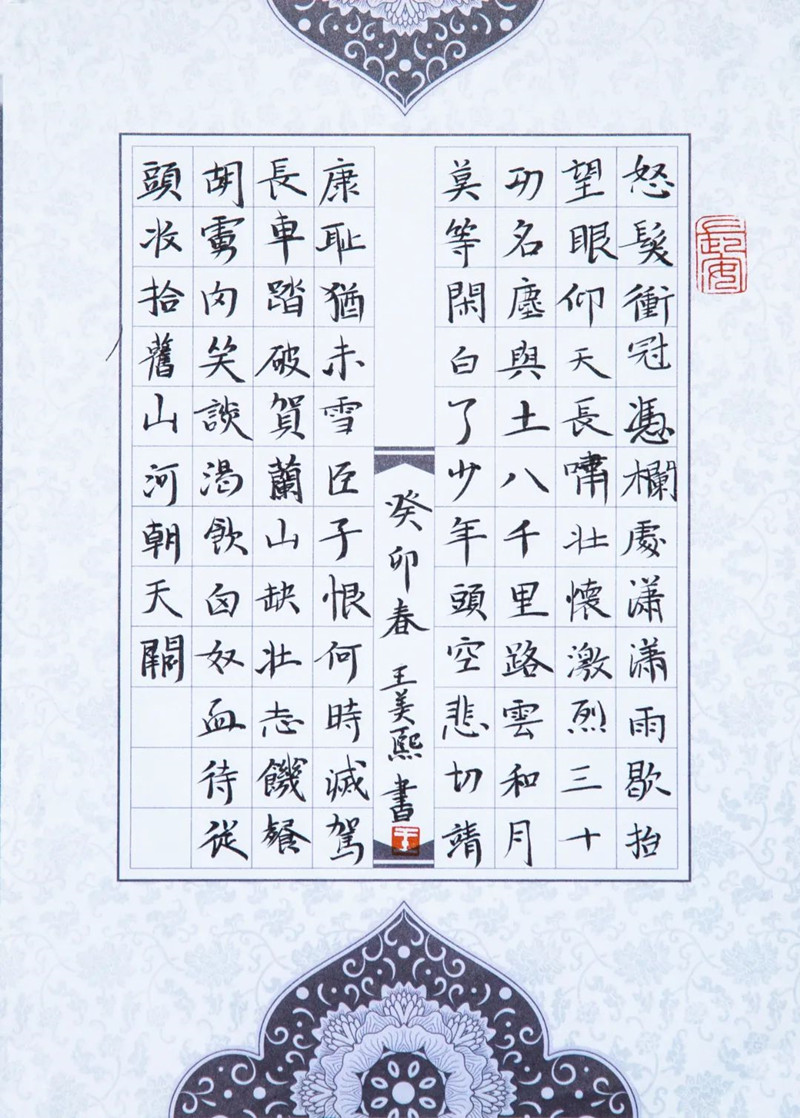 怒髮衝冠憑欄處瀟瀟雨歇抬
望眼仰天長嘯壯懷激烈三十
功名塵與土八千里路雲和月
莫等閑白了少年頭空悲切靖
康耻猶未雪臣子恨何時滅駕
長車踏破賀蘭山缺壯志饑餐
胡虜肉笑談渴飲匈奴血待從
頭收拾舊山河朝天闕
癸卯春 王美熙書
王
長安